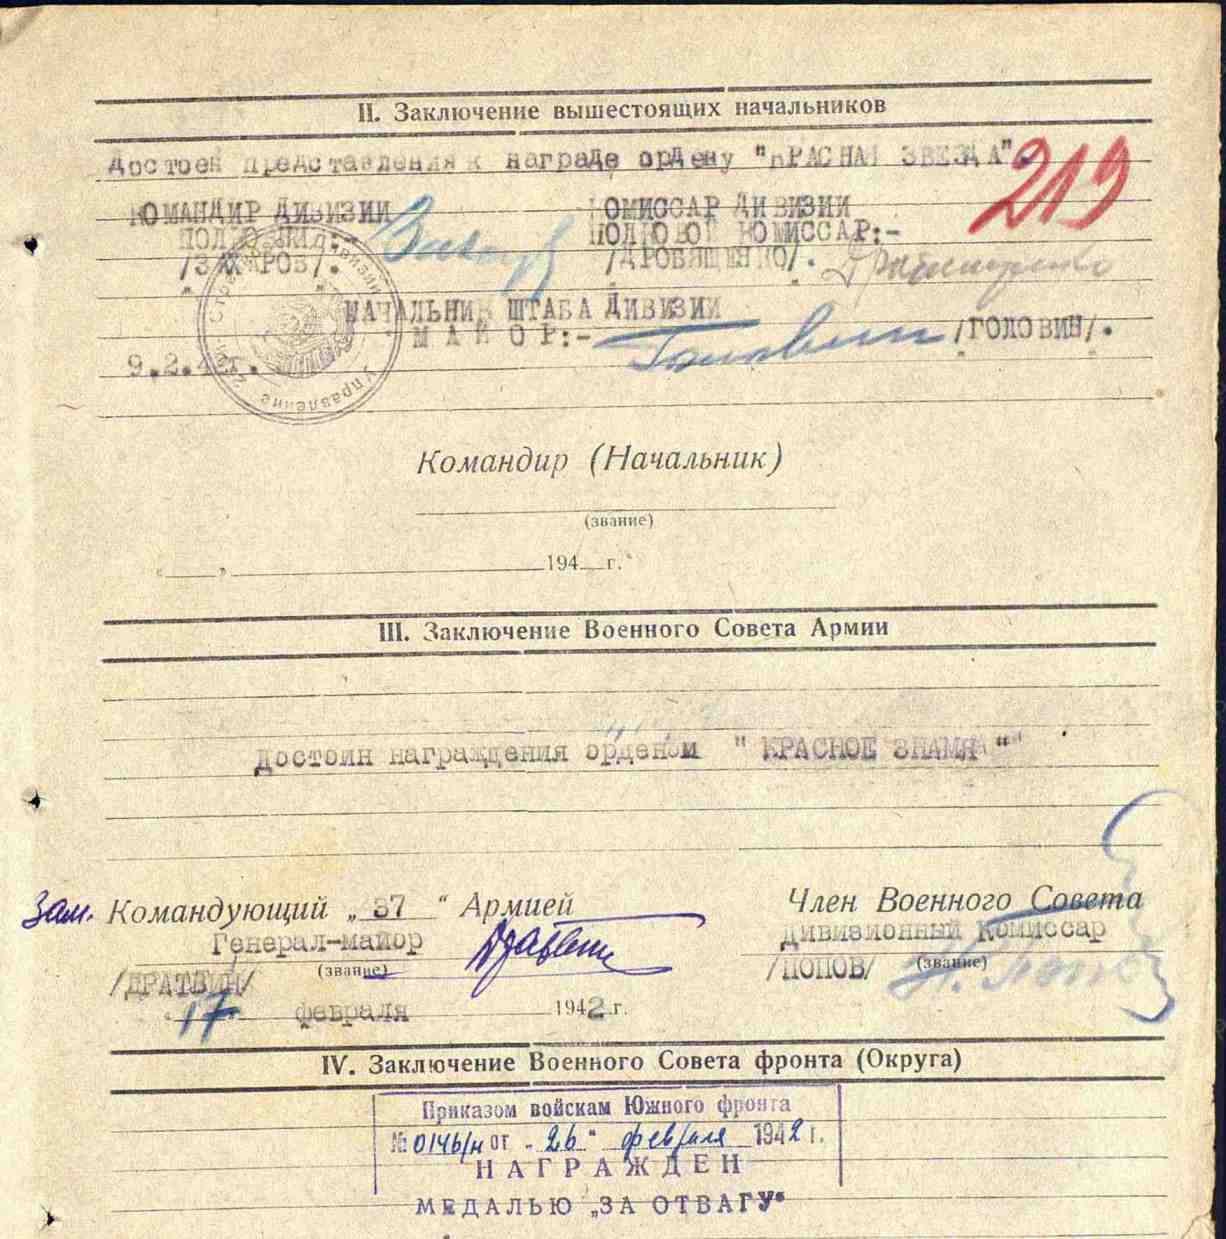 II. Заключение вышестоящих начальников
Достоен представления к награде ордену "КРАСНАЯ ЗВЕЗДА".
219
КОМАНДИР ДИВИЗИИ КОМИССАР ДИВИЗИИ
ПОЛКОВОЙ КОМИССАР:-
/ЗАХАРОВ/. /ДРОБЯЩЕНКО/.
НАЧАЛЬНИК ШТАБА ДИВИЗИИ
МАЙОР:- Головин /ГОЛОВИН/.
9.2.
Управление
Командир (Начальник)
(звание)
„ " 194 г.
III. Заключение Военного Совета Армии
Достоин награждения орденом "КРАСНОЕ ЗНАМЯ"
Зам. Командующий „37" Армией Член Военного Совета
Генерал-майор Дивизионный Комиссар
(звание) (звание)
/ДРАТВИН/ /ПОПОВ/
„17" февраля 1942 г.
IV. Заключение Военного Совета фронта (Округа)
Приказом войскам Южного фронта
№ 0146/н от „26" февраля 1942 г.
НАГРАЖДЕН
МЕДАЛЬЮ „ЗА ОТВАГУ"